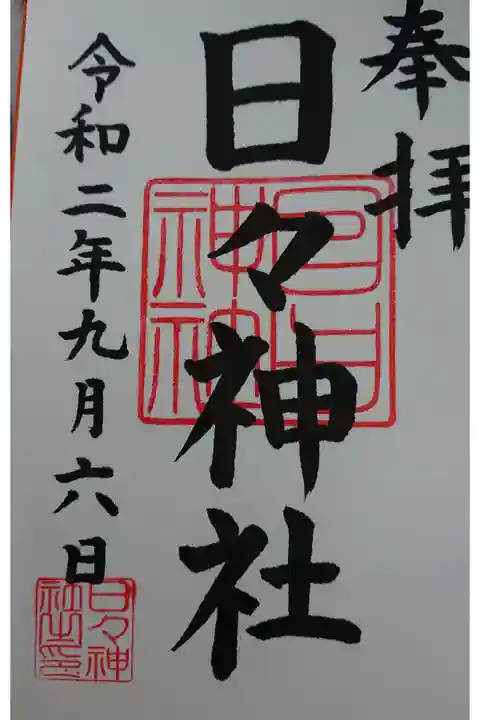 奉拝
日々神社
令和二年九月六日
日々神
社之印